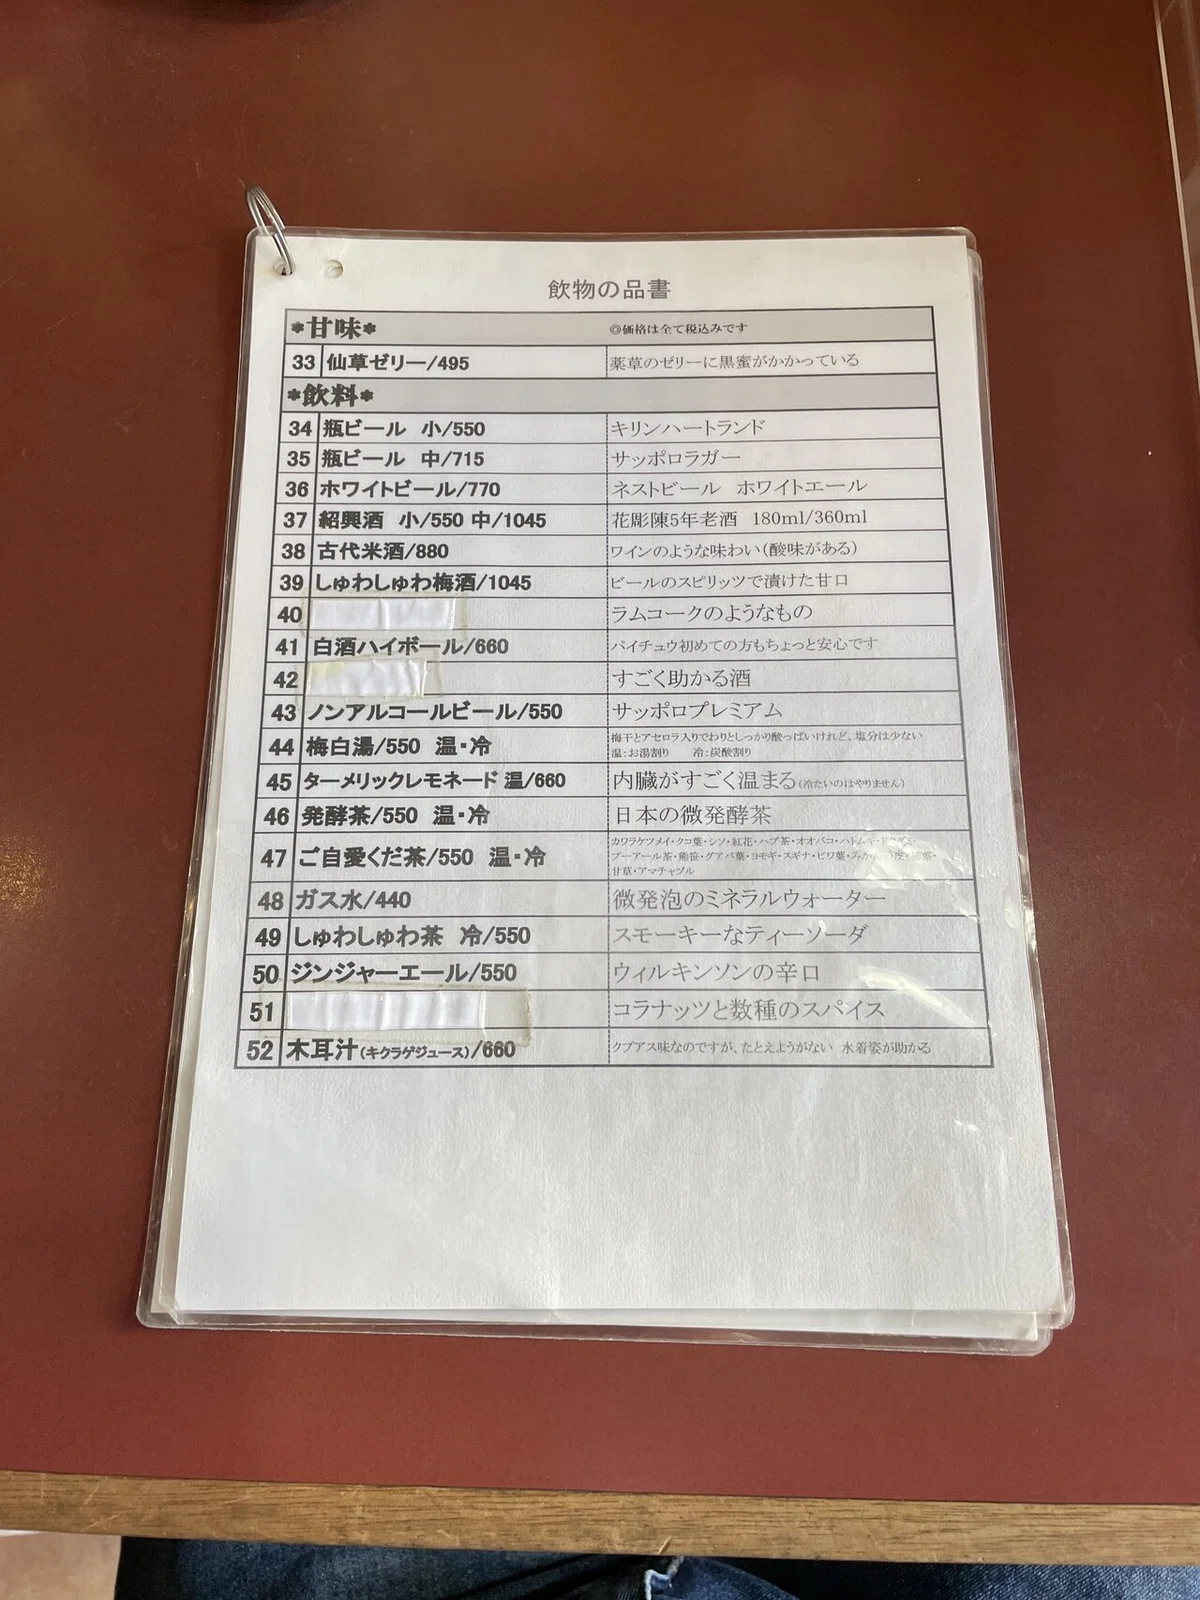 飲物の品書
*甘味* ◎価格は全て税込みです
33 仙草ゼリー/495 薬草のゼリーに黒蜜がかかっている
*飲料*
34 瓶ビール 小/550 キリンハートランド
35 瓶ビール 中/715 サッポロラガー
36 ホワイトビール/770 ネストビール ホワイトエール
37 紹興酒 小/550 中/1045 花彫陳5年老酒 180ml/360ml
38 古代米酒/880 ワインのような味わい(酸味がある)
39 しゅわしゅわ梅酒/1045 ビールのスピリッツで漬けた甘口
40 ラムコークのようなもの
41 白酒ハイボール/660 パイチュウ初めての方もちょっと安心です
42 すごく助かる酒
43 ノンアルコールビール/550 サッポロプレミアム
44 梅白湯/550 温・冷 梅干とアセロラ入りでわりとしっかり酸っぱいけれど、塩分は少ない
温:お湯割り 冷:炭酸割り
45 ターメリックレモネード 温/660 内臓がすごく温まる(冷たいのはやりません)
46 発酵茶/550 温・冷 日本の微発酵茶
47 ご自愛くだ茶/550 温・冷 カワラケツメイ・クコ葉・シソ・紅花・ハブ茶・オオバコ・ハトムギ・ドクダミ・
プーアール茶・熊笹・グアバ葉・ヨモギ・スギナ・ビワ葉・みかん
甘草・アマチャヅル
48 ガス水/440 微発泡のミネラルウォーター
49 しゅわしゅわ茶 冷/550 スモーキーなティーソーダ
50 ジンジャーエール/550 ウィルキンソンの辛口
51 コラナッツと数種のスパイス
52 木耳汁(キクラゲジュース)/660 クプアス味なのですが、たとえようがない 水着姿が助かる